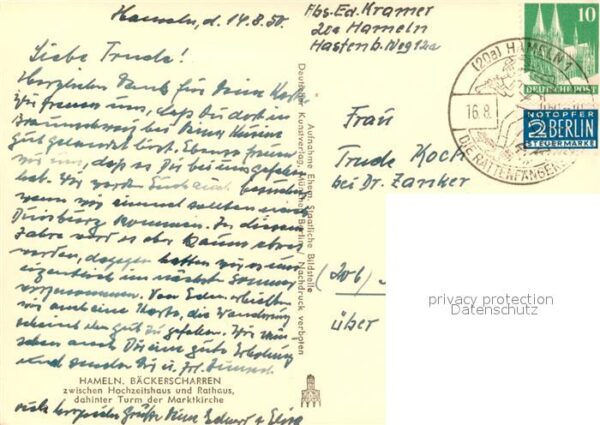 Hameln, d. 14.8.50.
Liebe Trude!
Herzlichen Dank für Deine Karte
Wir freuen uns, dass Du dort in
Braunschweig bei Deiner Kusine
gut gelandet bist. Ebenso freuen
wir uns, dass es Dir bei uns gefallen
hat. Wir werden Euch auch besuchen
wenn wir einmal sollten nach
Duisburg kommen. In diesem
Jahre wird es aber kaum etwas
werden, dagegen hatten wir es uns
eigentlich im nächsten Sommer
vorgenommen. Von Edm. erhielten
wir auch eine Karte, die Wanderung
scheint ihm gut zu gefallen. Wir wün
schen auch Dir eine gute Erholung
und senden Dir u. Frl.
viele herzliche Grüße Deine Eduard u. Elise
HAMELN. BÄCKERSCHARREN
zwischen Hochzeitshaus und Rathaus,
dahinter Turm der Marktkirche
Aufnahme Ehem. Staatliche Bildstelle
Deutscher Kunstverlag, München Berlin / Nachdruck verboten
Abs. Ed. Kramer
20a Hameln
Hastenb. Weg 12a
Frau
Trude Koch
bei Dr. Zanker
(20b)
über
10
DEUTSCHE POST
NOTOPFER
2 BERLIN
STEUERMARKE
(20a) HAMELN 1
16.8.
DIE RATTENFÄNGER
privacy protection
Datenschutz